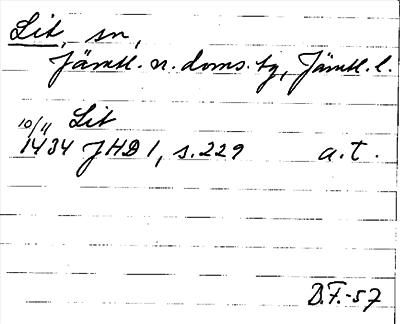 Lit, sn,
Jämtl. n. doms. tg, Jämtl. l.
10/11 Lit
1434 JHD 1, s. 229 a. t.
D.F.-57